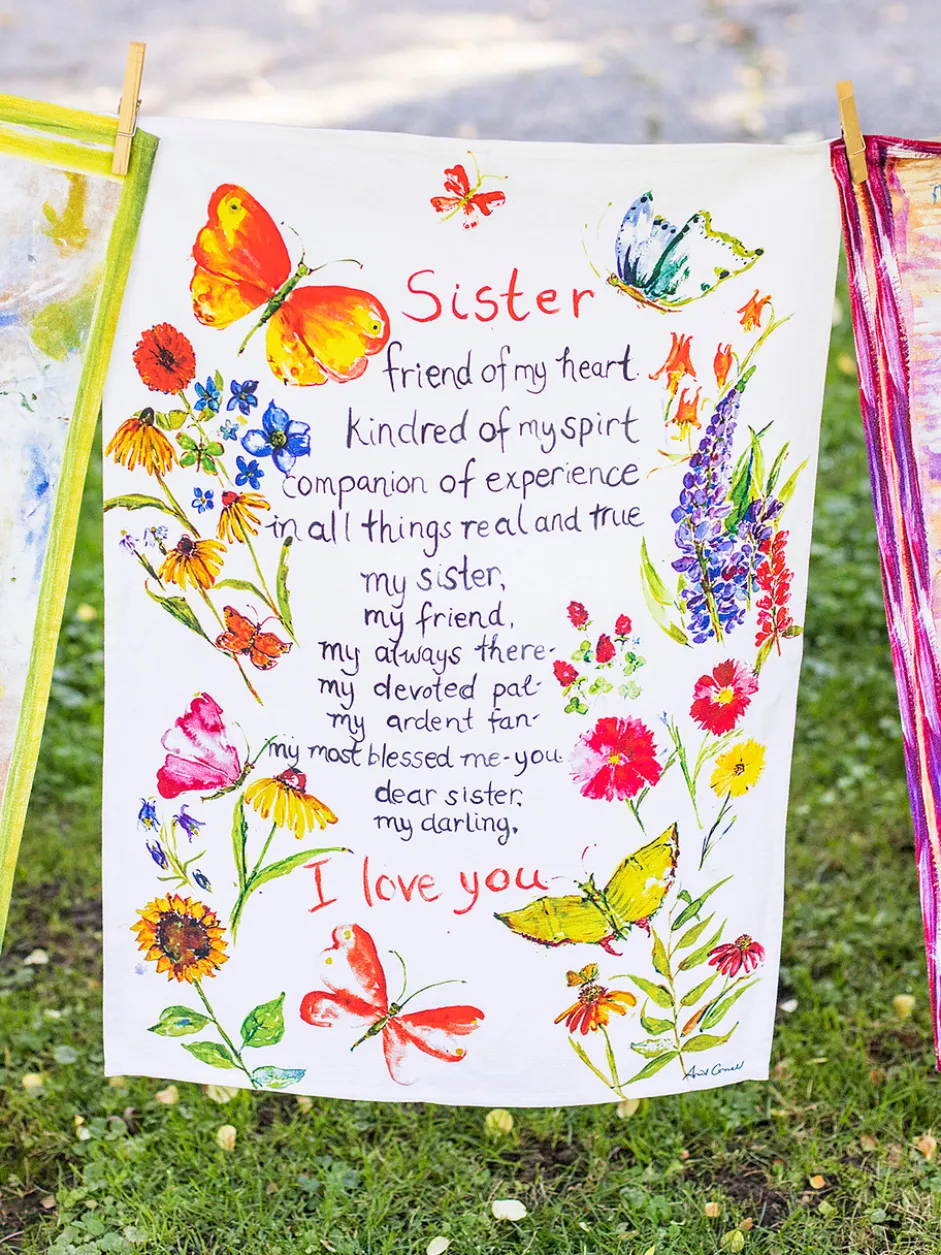 Sister
friend of my heart.
kindred of my spirt
companion of experience
in all things real and true
my sister,
my friend,
my always there-
my devoted pal-
my ardent fan-
my most blessed me-you
dear sister,
my darling,
I love you